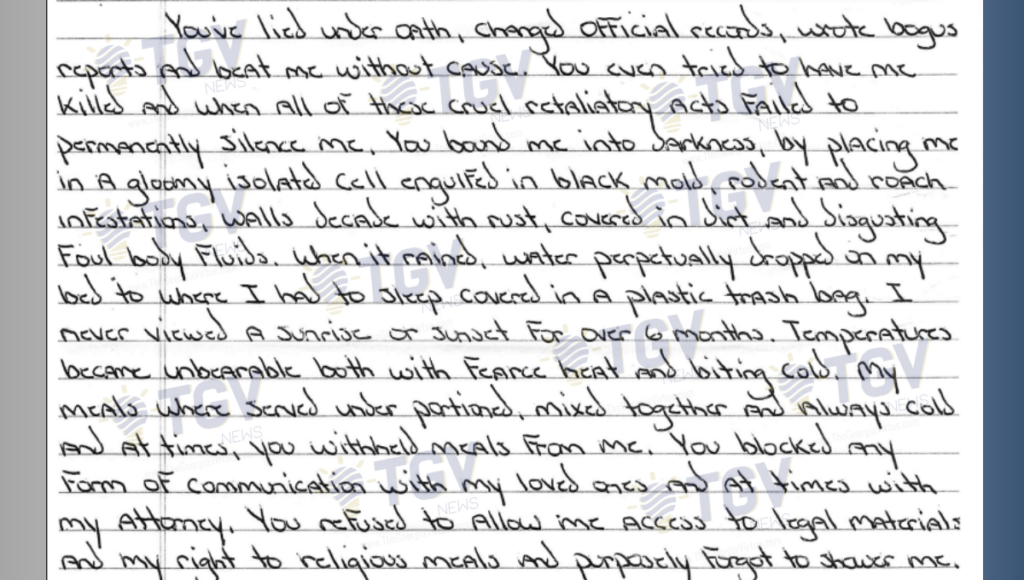 You've lied under oath, changed official records, wrote bogus
reports and beat me without cause. You even tried to have me
killed and when all of these cruel retaliatory acts failed to
permanently silence me. You bound me into darkness, by placing me
in a gloomy isolated cell engulfed in black mold, rodent and roach
infestations, walls decade with rust, covered in dirt and disgusting
foul body fluids. When it rained, water perpetually dropped on my
bed to where I had to sleep covered in a plastic trash bag. I
never viewed a sunrise or sunset for over 6 months. Temperatures
became unbearable both with fearce heat and biting cold. My
meals where served under portioned, mixed together and always cold
and at times, you withheld meals from me. You blocked any
form of communication with my loved ones and at times with
my attorney. You refused to allow me access to legal materials
and my right to religious meals and purposely forgot to shower me.
TGV
NEWS